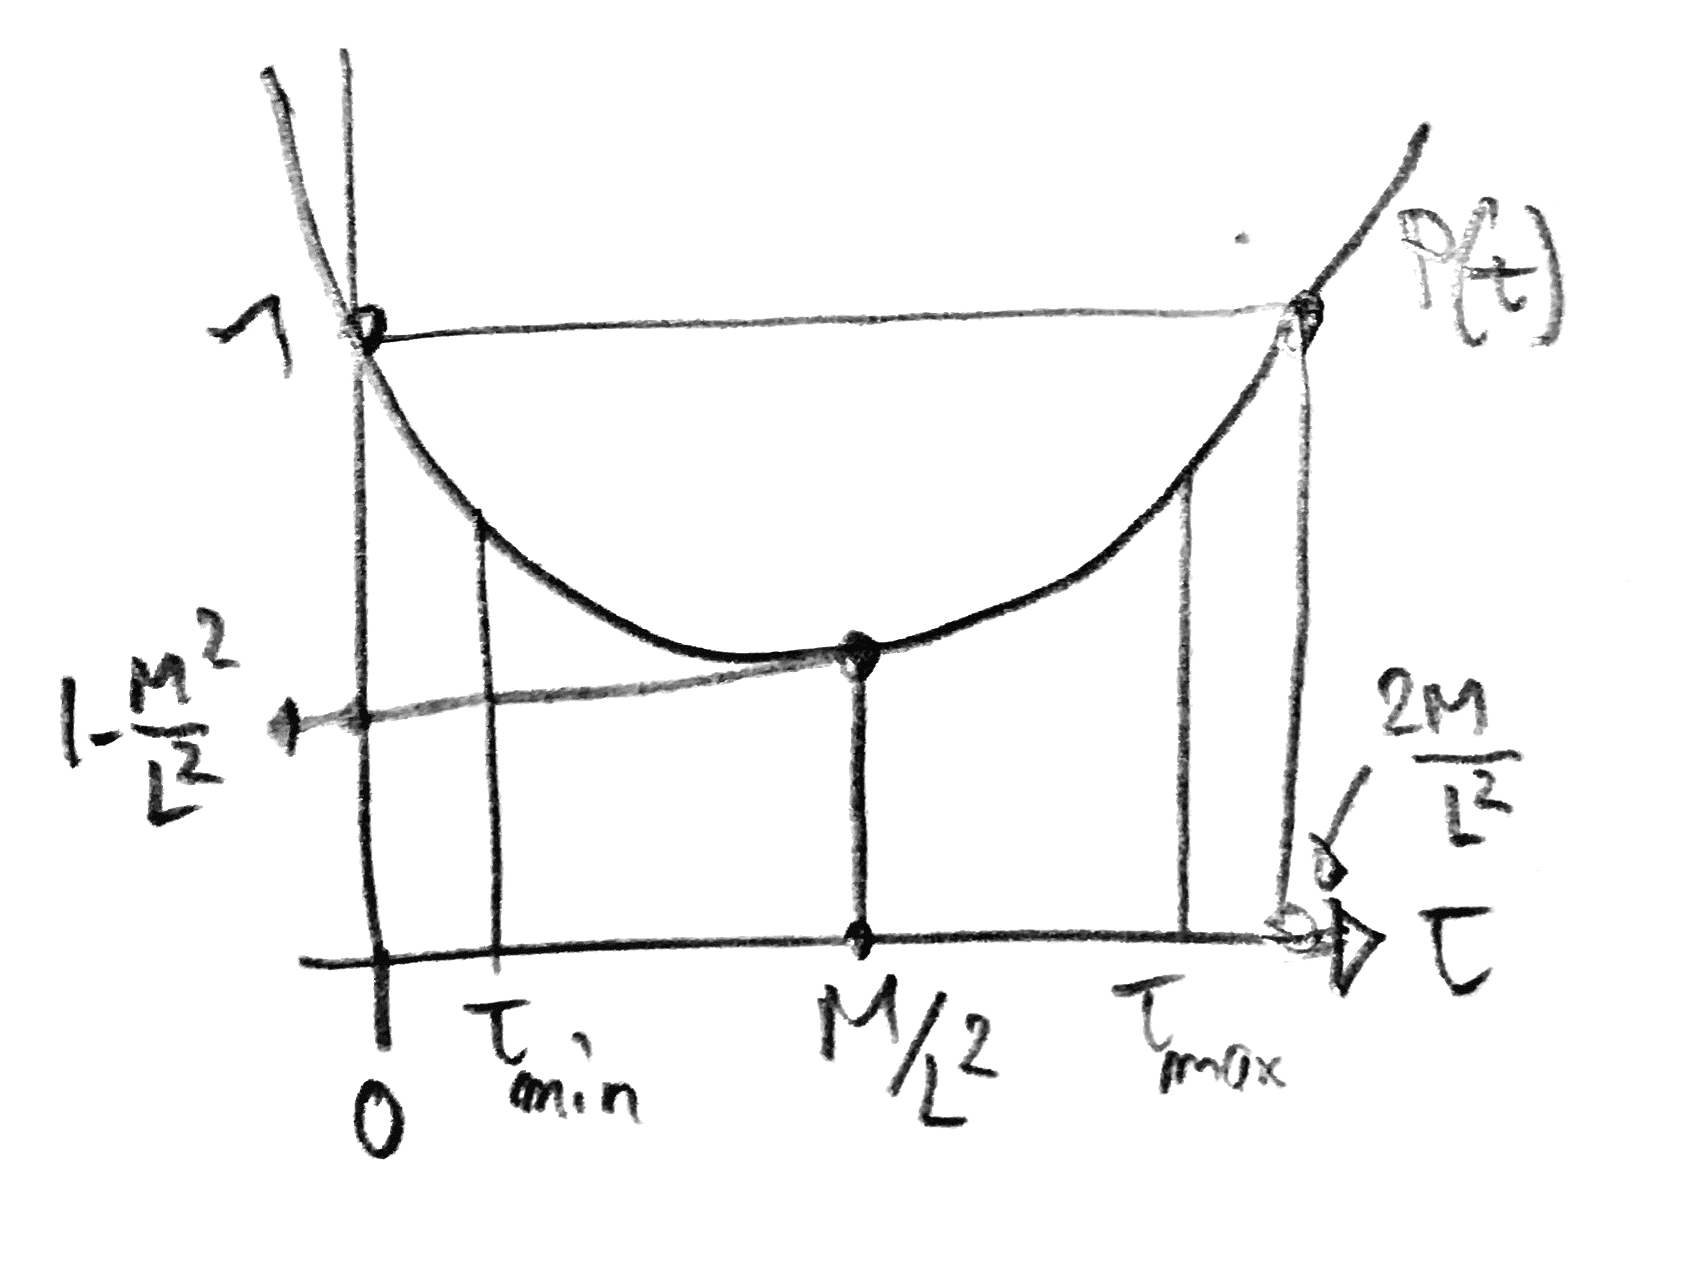 P(t)
1
1 - M²/L²
2M/L²
τ
τmin
M/L²
τmax
0